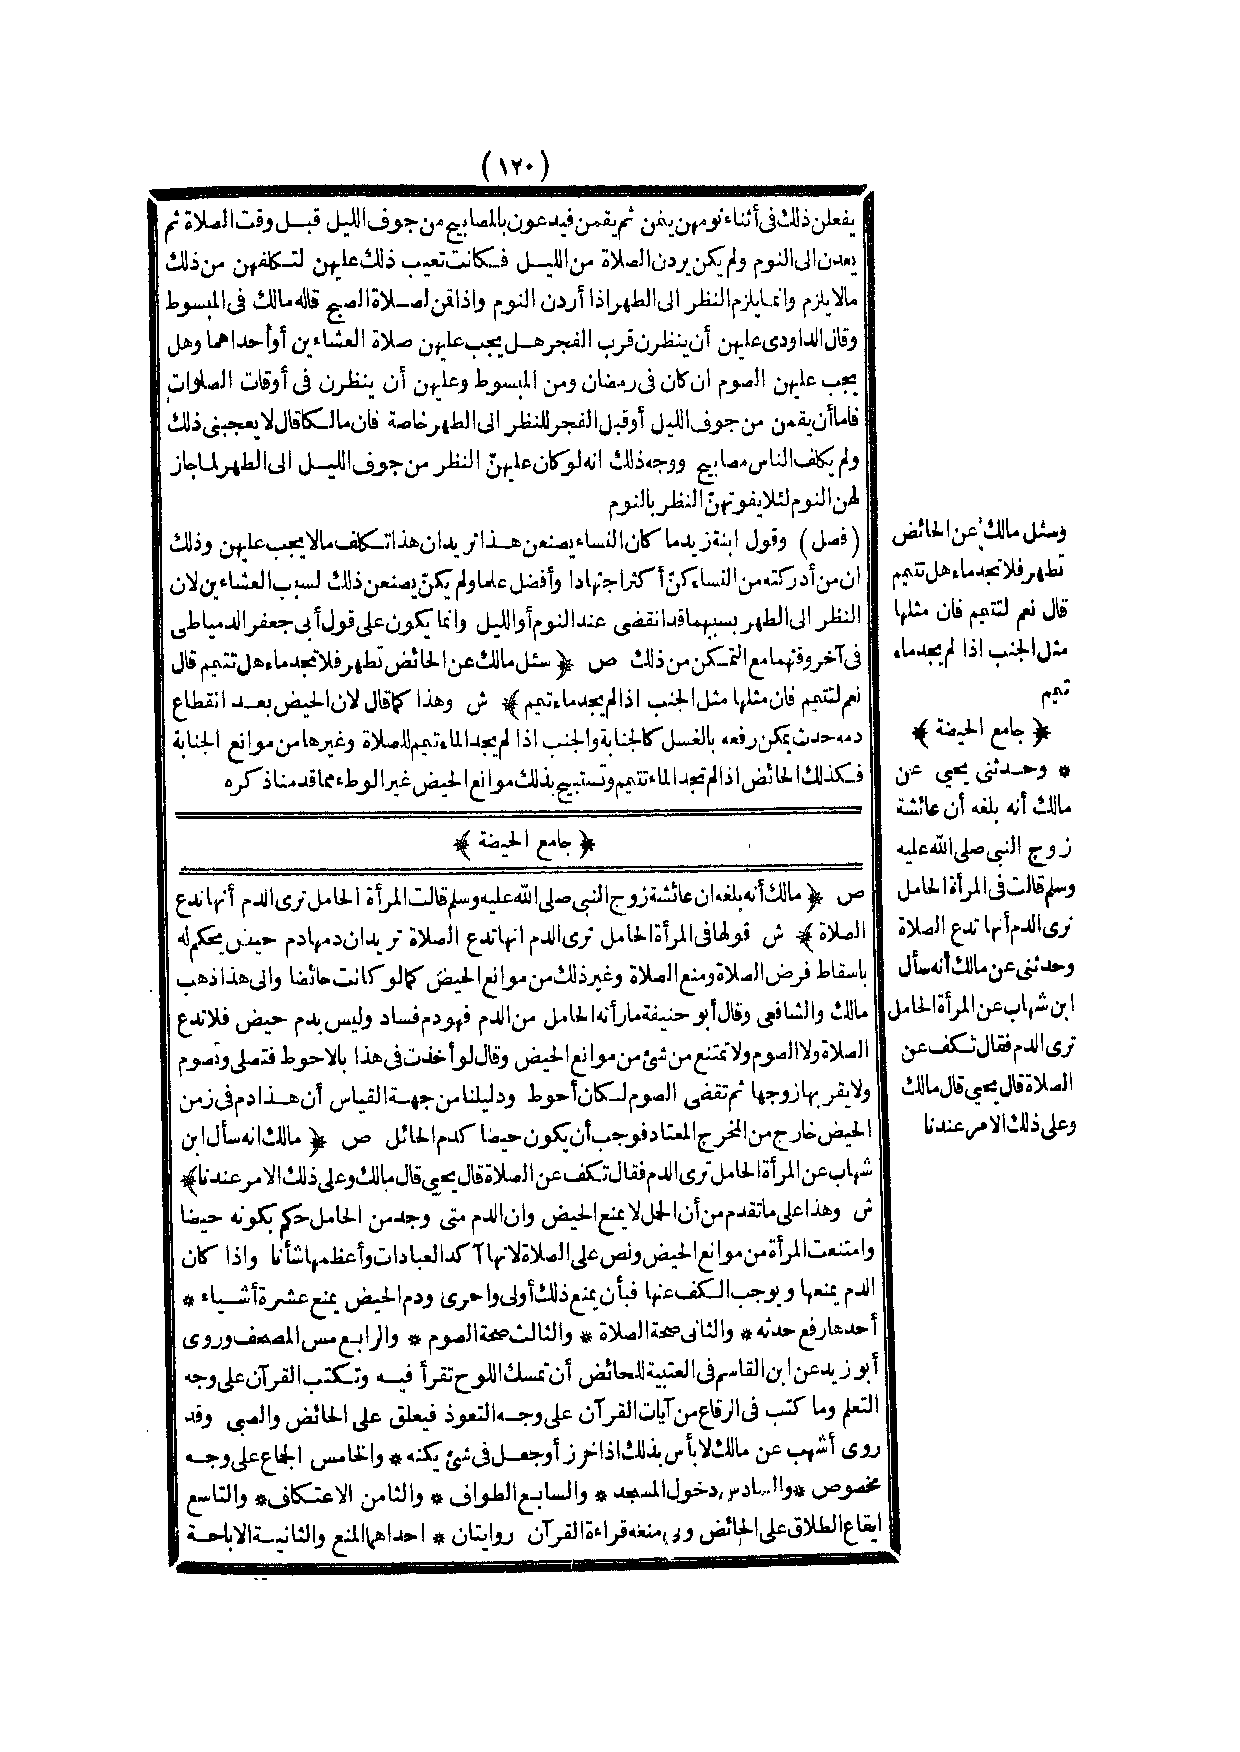 (١٢٠)
يفعلن ذلك فى أثناء نومهن ينمن ثم يقمن فيدعون بالمصابيح من جوف الليل قبل وقت الصلاة ثم
يعدن الى النوم ولم يكن يردن الصلاة من الليل فكانت تعيب ذلك عليهن لتكلفهن من ذلك
مالا يلزم وانما يلزم النظر الى الطهر اذا أردن النوم واذا قن لصلاة الصبح قاله مالك فى المبسوط
وقال الداودى عليهن أن ينظرن قرب الفجر هل يجب عليهن صلاة العشاءين أو أحداهما وهل
يجب عليهن الصوم ان كان فى رمضان ومن المبسوط وعليهن أن ينظرن فى أوقات الصلوات
فاما أن يقمن من جوف الليل أو قبل الفجر للنظر الى الطهر خاصة فان مالكا قال لا يعجبنى ذلك
ولم يكلف الناس مصابيح ووجه ذلك انه لو كان عليهنّ النظر من جوف الليل الى الطهر لما جاز
لهن النوم لئلا يفوتهنّ النظر بالنوم
(فصل) وقول ابنة زيد ما كان النساء يصنعن هذا تريد ان هذا تكلف مالا يجب عليهن وذلك
ان من أدركته من النساء كنّ أكثر اجتهادا وأفضل علما ولم يكنّ يصنعن ذلك لسبب العشاءين لان
النظر الى الطهر بسببهما قد انقضى عند النوم أو الليل وانما يكون على قول أبى جعفر الدمياطى
فى آخر وقتهما مع التمكن من ذلك ص ﴿ سئل مالك عن الحائض تطهر فلا تجد ماء هل تتيمم قال
نعم لتتيمم فان مثلها مثل الجنب اذا لم يجد ماء تيمم ﴾ ش وهذا كما قال لان الحيض بعد انقطاع
دمه حدث يمكن رفعه بالغسل كالجنابة والجنب اذا لم يجد الماء تيمم للصلاة وغيرها من موانع الجنابة
فكذلك الحائض اذا لم تجد الماء تتيمم وتستبيح بذلك موانع الحيض غير الوطء مما قدمنا ذكره
﴿ جامع الحيضة ﴾
ص ﴿ مالك أنه بلغه ان عائشة زوج النبى صلى الله عليه وسلم قالت المرأة الحامل ترى الدم أنها تدع
الصلاة ﴾ ش قولها فى المرأة الحامل ترى الدم انها تدع الصلاة تريد ان دمها دم حيض يحكم له
باسقاط فرض الصلاة ومنع الصلاة وغير ذلك من موانع الحيض كما لو كانت حائضا والى هذا ذهب
مالك والشافعى وقال أبو حنيفة ما رأته الحامل من الدم فهو دم فساد وليس بدم حيض فلا تدع
الصلاة ولا الصوم ولا تمتنع من شئ من موانع الحيض وقال لو أخذت فى هذا بالاحوط فتصلى وتصوم
ولا يقربها زوجها ثم تقضى الصوم لكان أحوط ودليلنا من جهة القياس أن هذا دم فى زمن
الحيض خارج من المخرج المعتاد فوجب أن يكون حيضا كدم الحائل ص ﴿ مالك انه سأل ابن
شهاب عن المرأة الحامل ترى الدم فقال تكف عن الصلاة قال يحيى قال مالك وعلى ذلك الامر عندنا ﴾
ش وهذا على ما تقدم من أن الحمل لا يمنع الحيض وان الدم متى وجد من الحامل حكم بكونه حيضا
وامتنعت المرأة من موانع الحيض ونص على الصلاة لانها آكد العبادات وأعظمها شأنا واذا كان
الدم يمنعها ويوجب الكف عنها فبأن يمنع ذلك أولى واحرى ودم الحيض يمنع عشرة أشياء *
أحدها رفع حدثه * والثانى صحة الصلاة * والثالث صحة الصوم * والرابع مس المصحف وروى
أبو زيد عن ابن القاسم فى العتبية للحائض أن تمسك اللوح تقرأ فيه وتكتب القرآن على وجه
التعلم وما كتب فى الرقاع من آيات القرآن على وجه التعوذ فيعلق على الحائض والصبى وقد
روى أشهب عن مالك لا بأس بذلك اذا خرز أو جعل فى شئ يكنه * والخامس الجماع على وجه
مخصوص * والسادس دخول المسجد * والسابع الطواف * والثامن الاعتكاف * والتاسع
ايقاع الطلاق على الحائض وفى منعه قراءة القرآن روايتان * احداهما المنع والثانية الاباحة
وسئل مالك عن الحائض
تطهر فلا تجد ماء هل تتيمم
قال نعم لتتيمم فان مثلها
مثل الجنب اذا لم يجد ماء
تيمم
﴿ جامع الحيضة ﴾
* وحدثنى يحيى عن
مالك أنه بلغه أن عائشة
زوج النبى صلى الله عليه
وسلم قالت فى المرأة الحامل
ترى الدم أنها تدع الصلاة
وحدثنى عن مالك أنه سأل
ابن شهاب عن المرأة الحامل
ترى الدم فقال تكف عن
الصلاة قال يحيى قال مالك
وعلى ذلك الامر عندنا